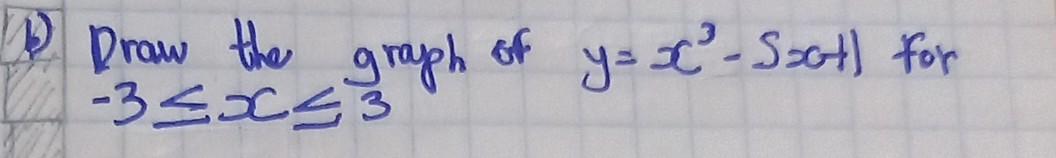 b) Draw the graph of y = x³ - 5x+1 for
-3 ≤ x ≤ 3